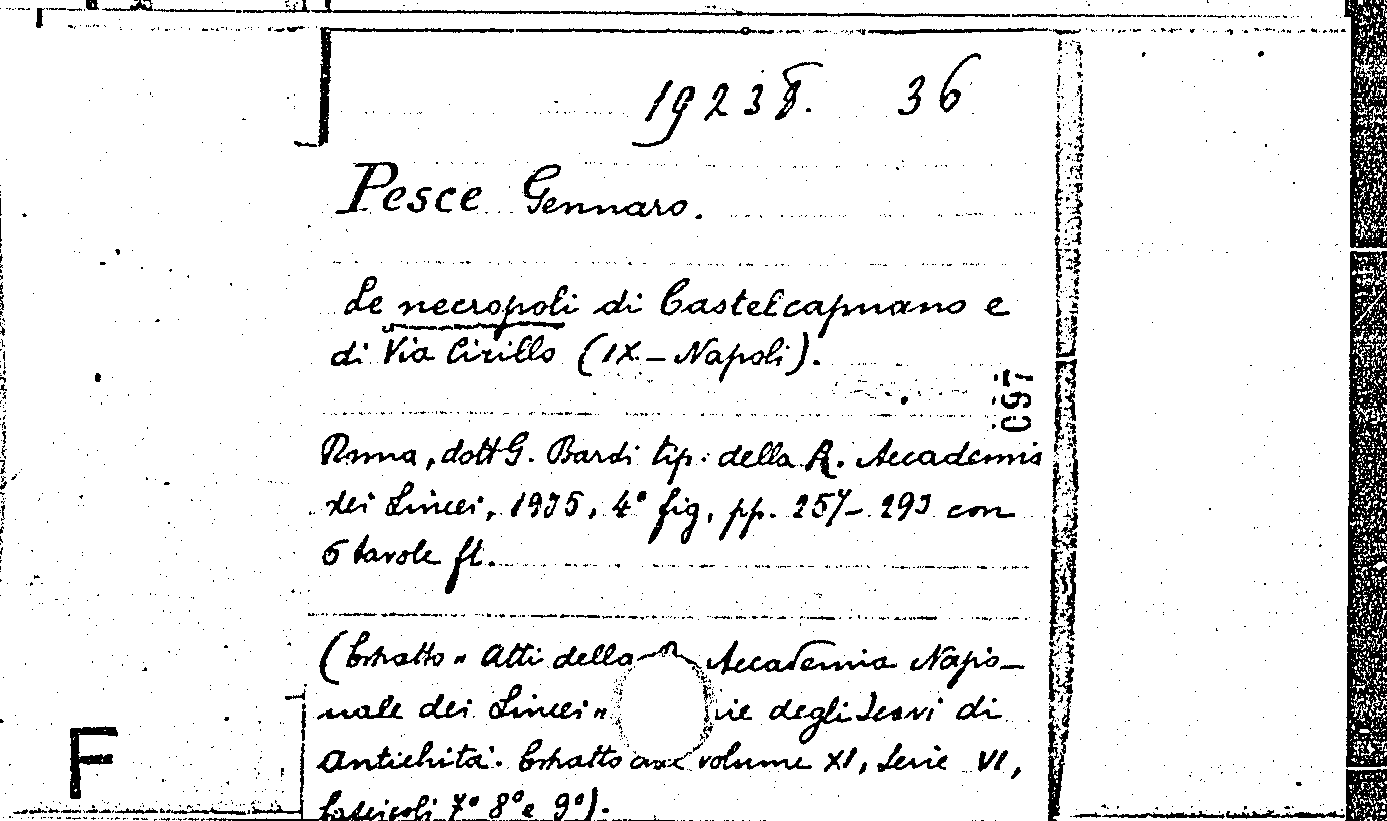 19238. 36
Pesce Gennaro.
Le necropoli di Castelcapuano e
di Via Cirillo (IX - Napoli).
C97
Roma, dott G. Bardi tip. della R. Accademia
dei Lincei, 1935, 4° fig, pp. 257-293 con
5 tavole ft.
(Estratto "Atti della Accademia Nazio-
nale dei Lincei" degli Scavi di
Antichità. Estratto volume XI, Serie VI,
fascicoli 7° 8° e 9°).
F